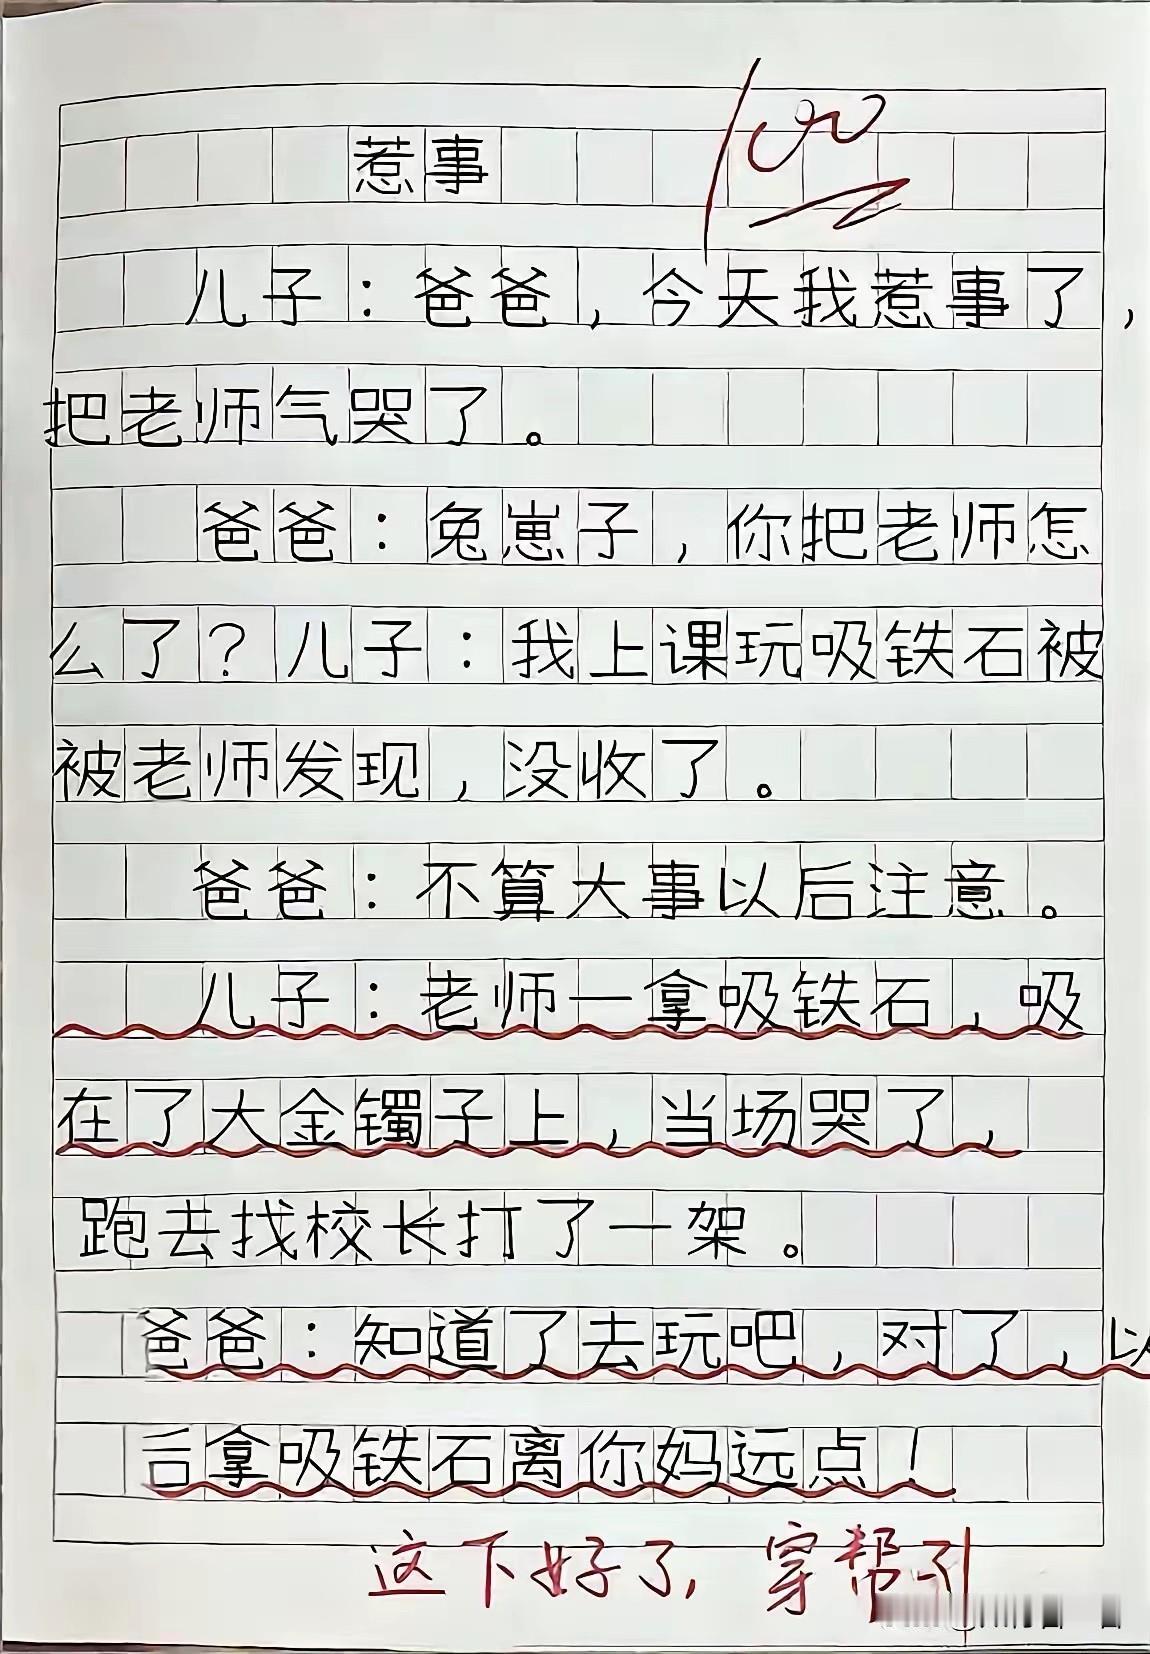 惹事
100
儿子：爸爸，今天我惹事了，
把老师气哭了。
爸爸：兔崽子，你把老师怎
么了？儿子：我上课玩吸铁石被
被老师发现，没收了。
爸爸：不算大事以后注意。
儿子：老师一拿吸铁石，吸
在了大金镯子上，当场哭了，
跑去找校长打了一架。
爸爸：知道了去玩吧，对了，以
后拿吸铁石离你妈远点！
这下好了，穿帮